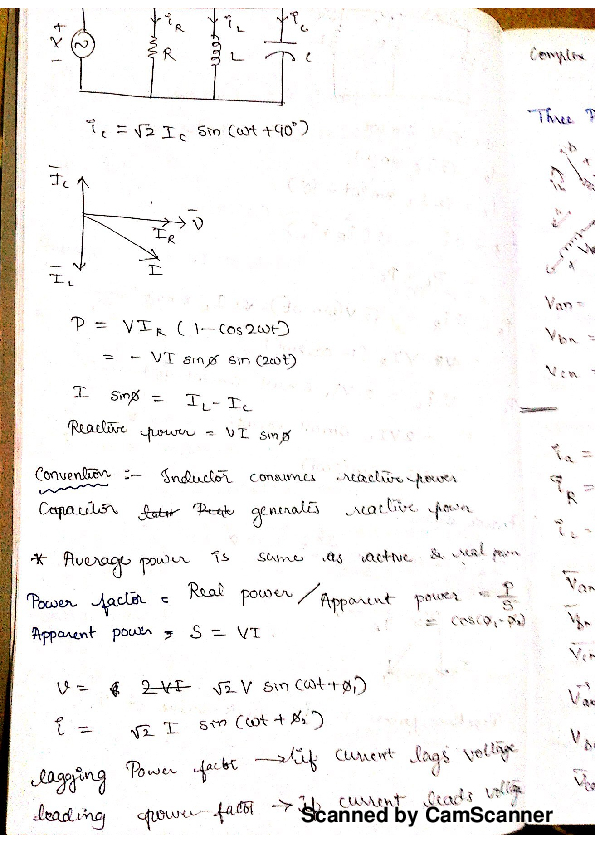 + V -
i_R i_L i_c
R L C
i_c = √2 I_c sin (ωt + 90°)
I̅_C
V̅
I_R
I
I̅_L
P = V I_R ( 1 - cos 2ωt)
= - VI sinø sin (2ωt)
I sinø = I_L - I_C
Reactive power = VI sinø
Convention :- Inductor consumes reactive power
Capacitor generates reactive power
* Average power is same as active & real power
Power factor = Real power / Apparent power = P/S
= cos(ø₁-ø₂)
Apparent power = S = VI
v = 2VI √2 V sin (ωt + ø₁)
i = √2 I sin (ωt + ø₂)
lagging Power factor → if current lags voltage
leading power factor → if current leads voltage
Complex
Three
Van =
Vbn =
Vcn =
Scanned by CamScanner